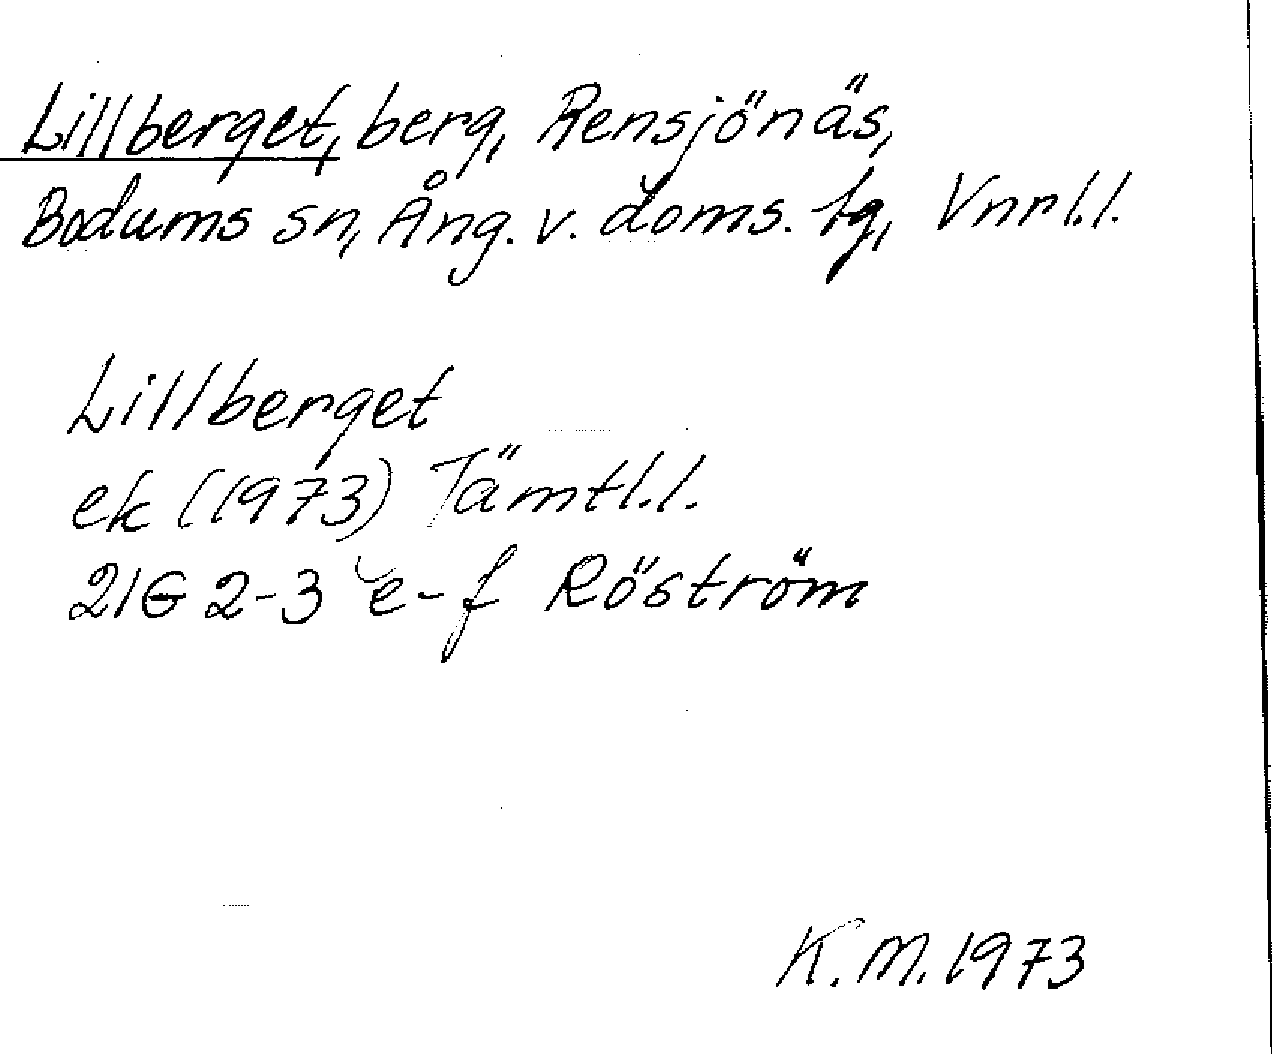 Lillberget, berg, Rensjönäs,
Bodums sn, Ång. v. doms. tg, Vnrl.l.
Lillberget
ek (1973) Jämtl.l.
21G 2-3 e-f Röström
K.M. 1973